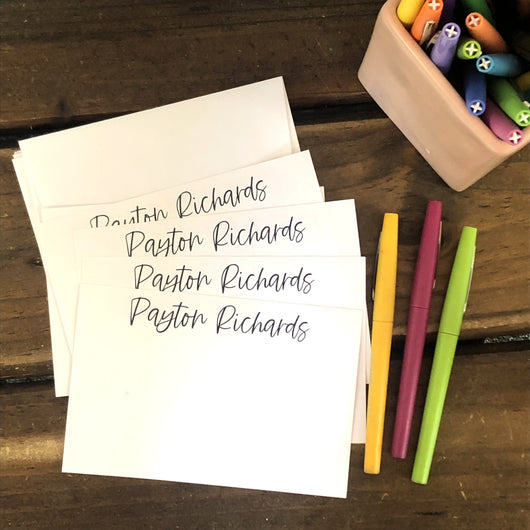 Payton Richards
Payton Richards
Payton Richards
Payton Richards